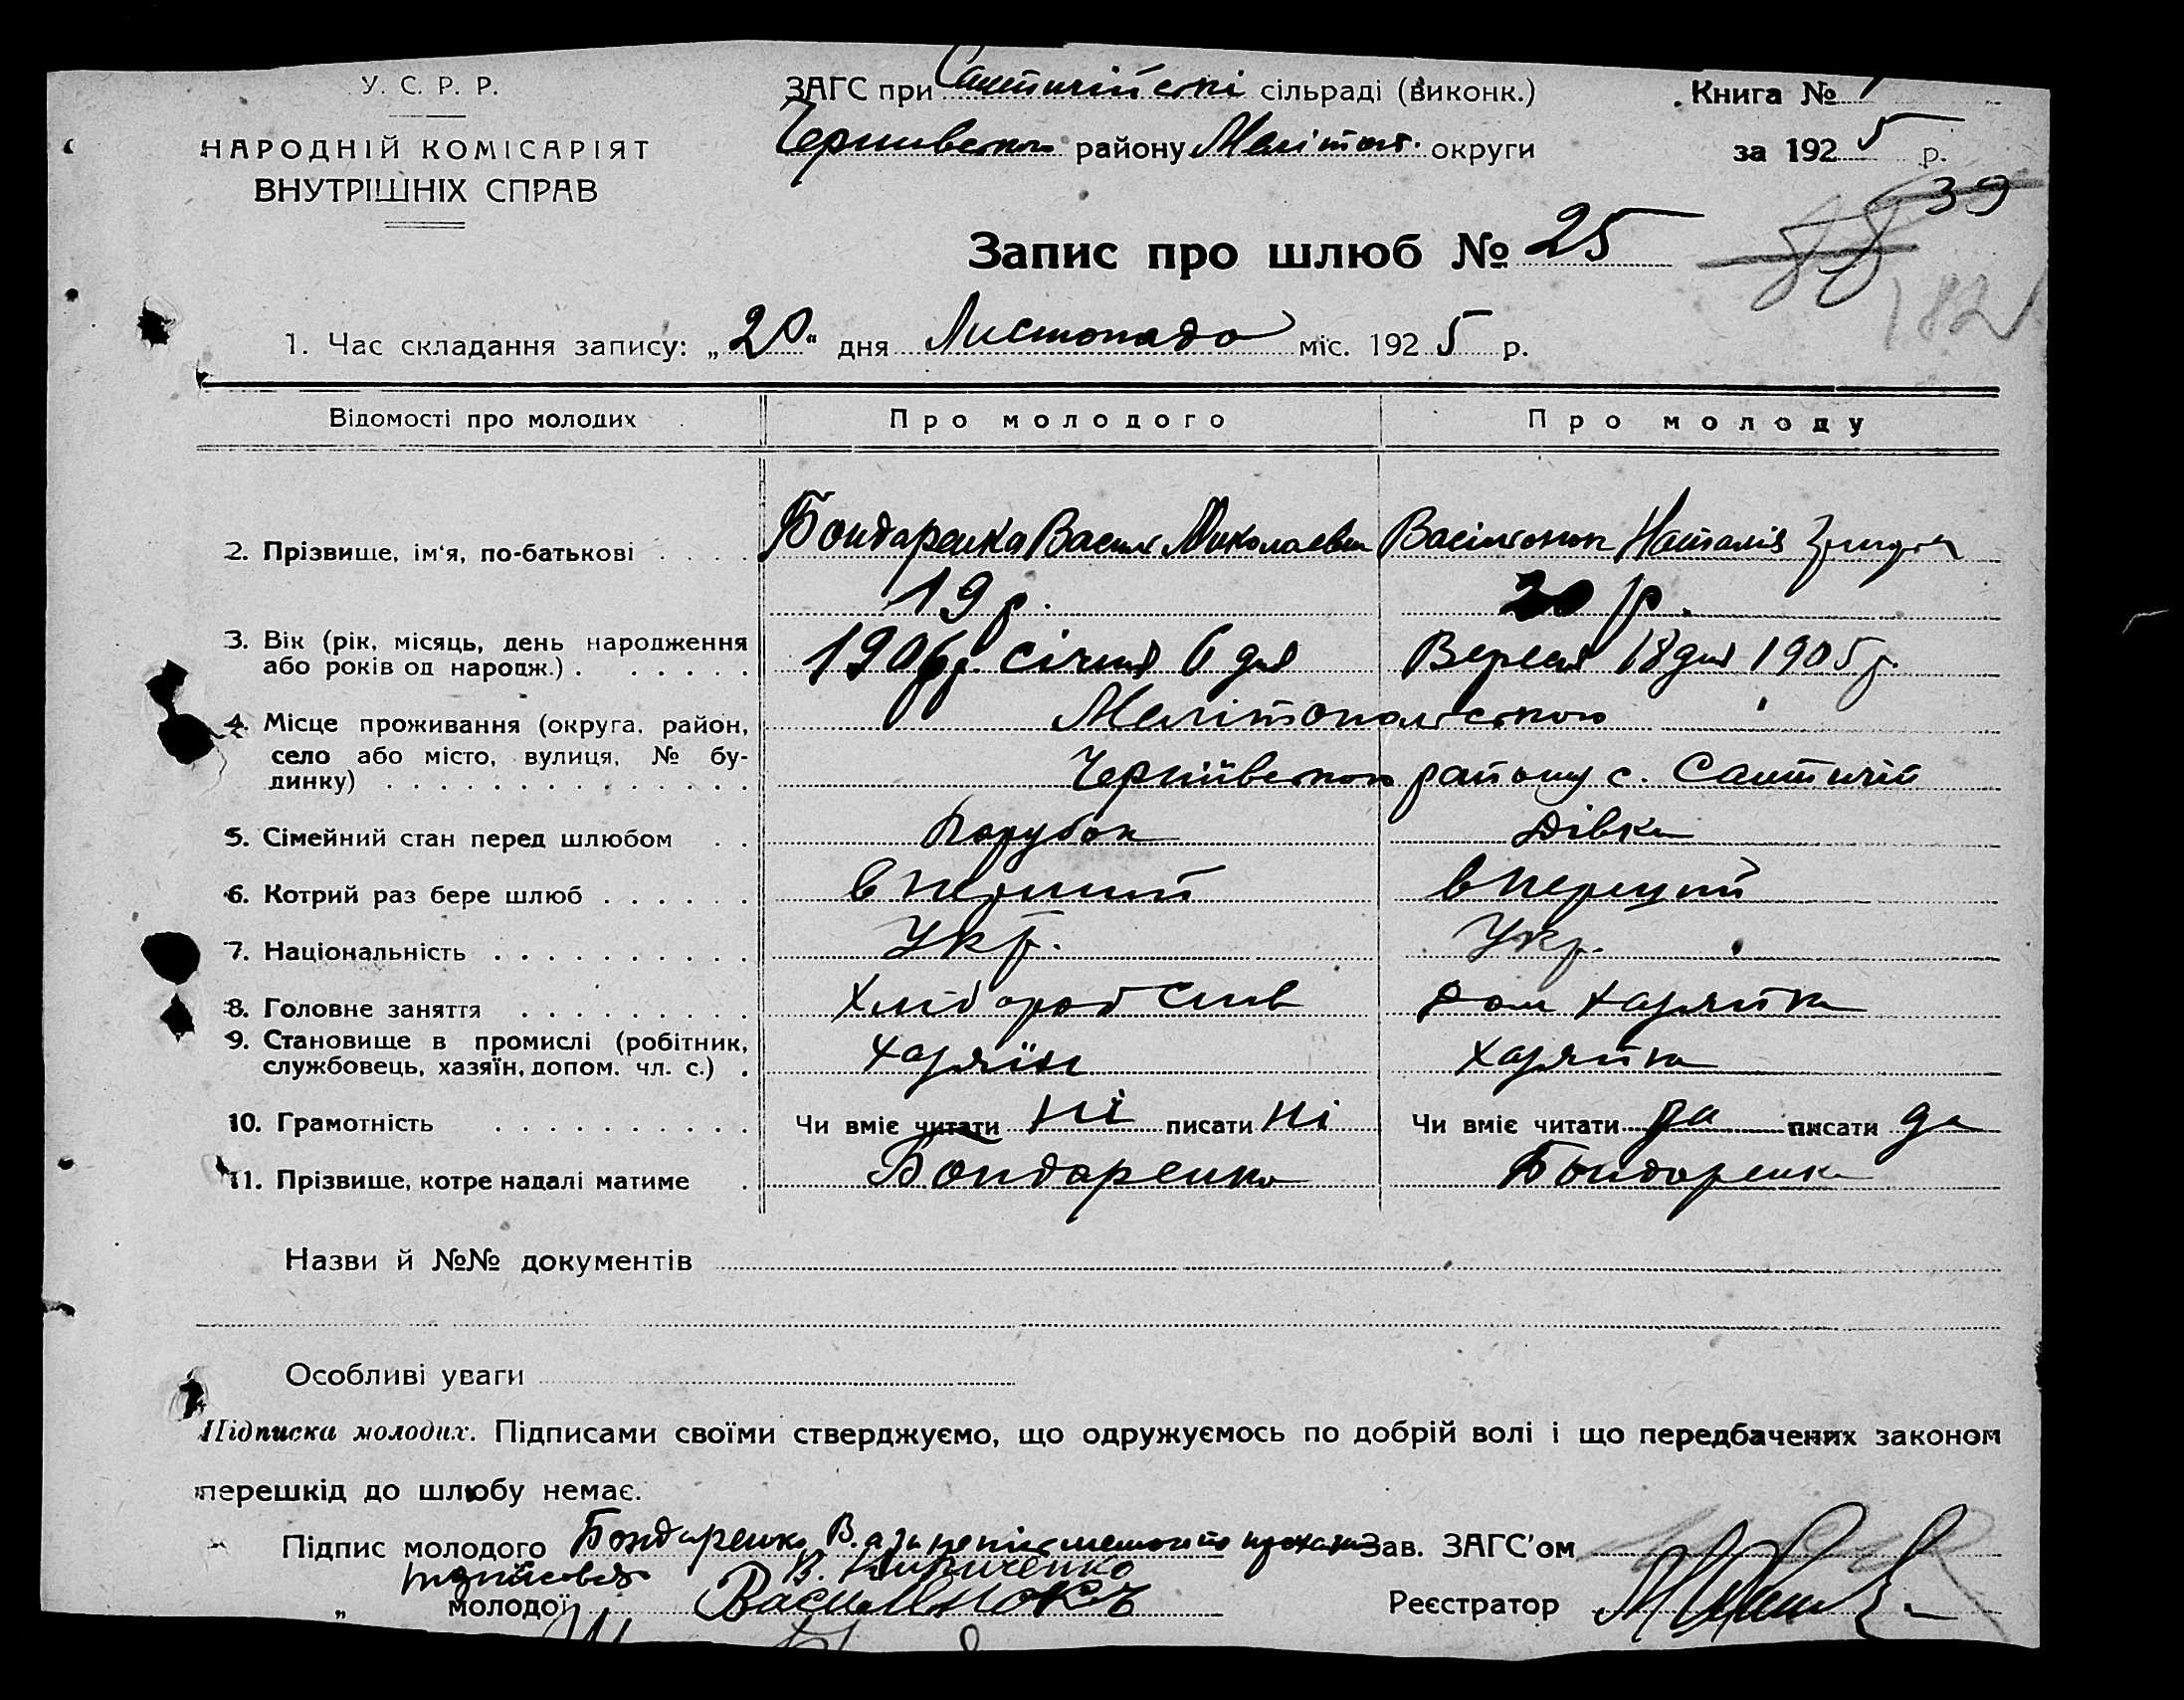 У. С. Р. Р.
НАРОДНІЙ КОМІСАРІЯТ
ВНУТРІШНІХ СПРАВ
ЗАГС при сільраді (виконк.)
району Меліто­п. округи
Книга № 1
за 1925 р.
39
182
Запис про шлюб № 25
1. Час складання запису: „20“ дня Листопада міс. 1925 р.
Відомості про молодих Про молодого Про молоду
2. Прізвище, ім‘я, по-батькові Бондаренко Василь Миколаевич Наталія
19 р. 20 р.
3. Вік (рік, місяць, день народження
або років од народж.) 1906 р. січня 6 дня Вересня 18 дня 1905 р.
4. Місце проживання (округа, район,
село або місто, вулиця, № бу-
динку)
Мелітопольською
району с.
5. Сімейний стан перед шлюбом Парубок Дівка
6. Котрий раз бере шлюб вперший вперший
7. Національність Укр. Укр.
8. Головне заняття дом хазяйка
9. Становище в промислі (робітник,
службовець, хазяїн, допом. чл. с.) хазяїн хазяйка
10. Грамотність Чи вміє читати ні писати ні Чи вміє читати да писати да
11. Прізвище, котре надалі матиме Бондаренко Бондаренко
Назви й №№ документів
Особливі уваги
Підписка молодих. Підписами своїми стверджуємо, що одружуємось по добрій волі і що передбачених законом
перешкід до шлюбу немає.
Підпис молодого Бондаренко В. а за Зав. ЗАГС'ом
В. Кириченко
„ молодої Василінокъ Реєстратор